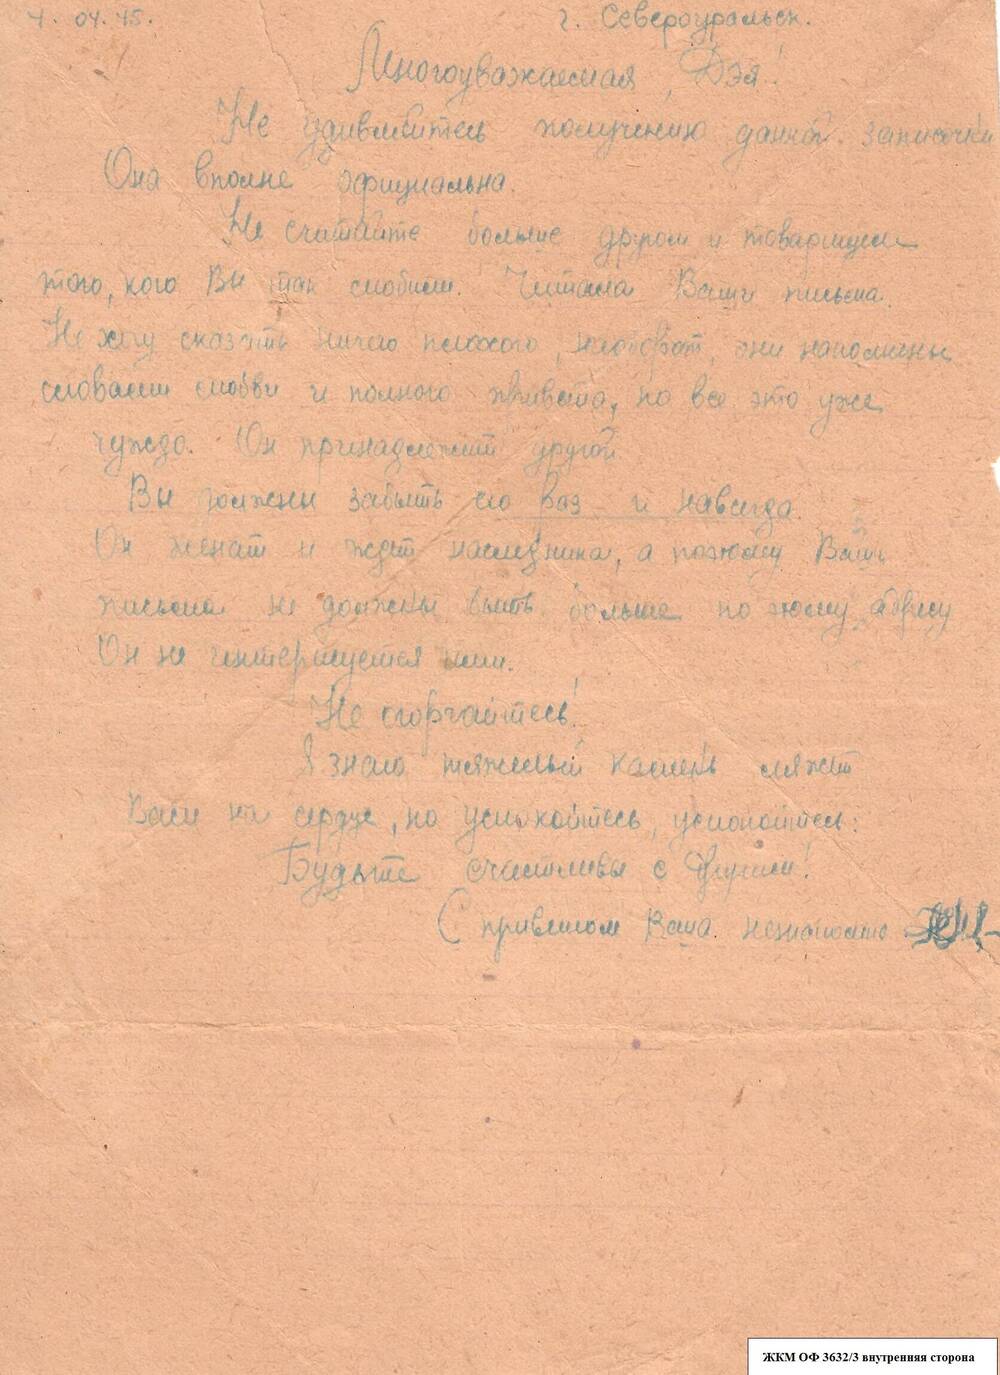 4. 04. 45. г. Североуральск.
Многоуважаемая, Дэя!
Не удивляйтесь получению данной записочки
Она вполне официальна.
Не считайте больше другом и товарищем
того, кого Вы так любили. Читала Ваши письма.
Не хочу сказать ничего плохого, наоборот, они наполнены
словами любви и полного привета, но все это уже
чуждо. Он принадлежит другой.
Вы должны забыть его раз и навсегда.
Он женат и ждет наследника, а поэтому Ваши
письма не должны быть больше по этому адресу
Он не интересуется ими.
Не огорчайтесь!
Я знаю тяжелый камень ляжет
Вам на сердце, но успокойтесь, успокойтесь:
Будьте счастливы с другим!
С приветом Ваша
ЖКМ ОФ 3632/3 внутренняя сторона